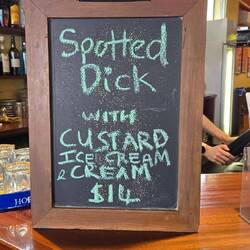 Spotted
Dick
WITH
CUSTARD
ICE CREAM
& CREAM
$14
HO